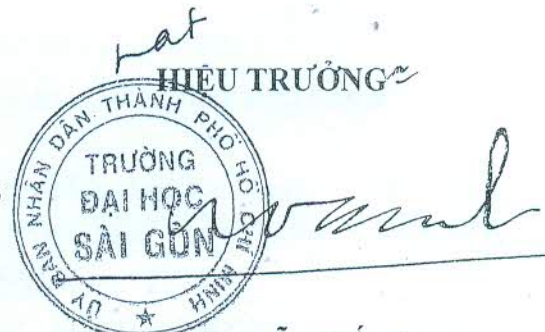 HIỆU TRƯỞNG
ỦY BAN NHÂN DÂN THÀNH PHỐ HỒ CHÍ MINH
TRƯỜNG
ĐẠI HỌC
SÀI GÒN